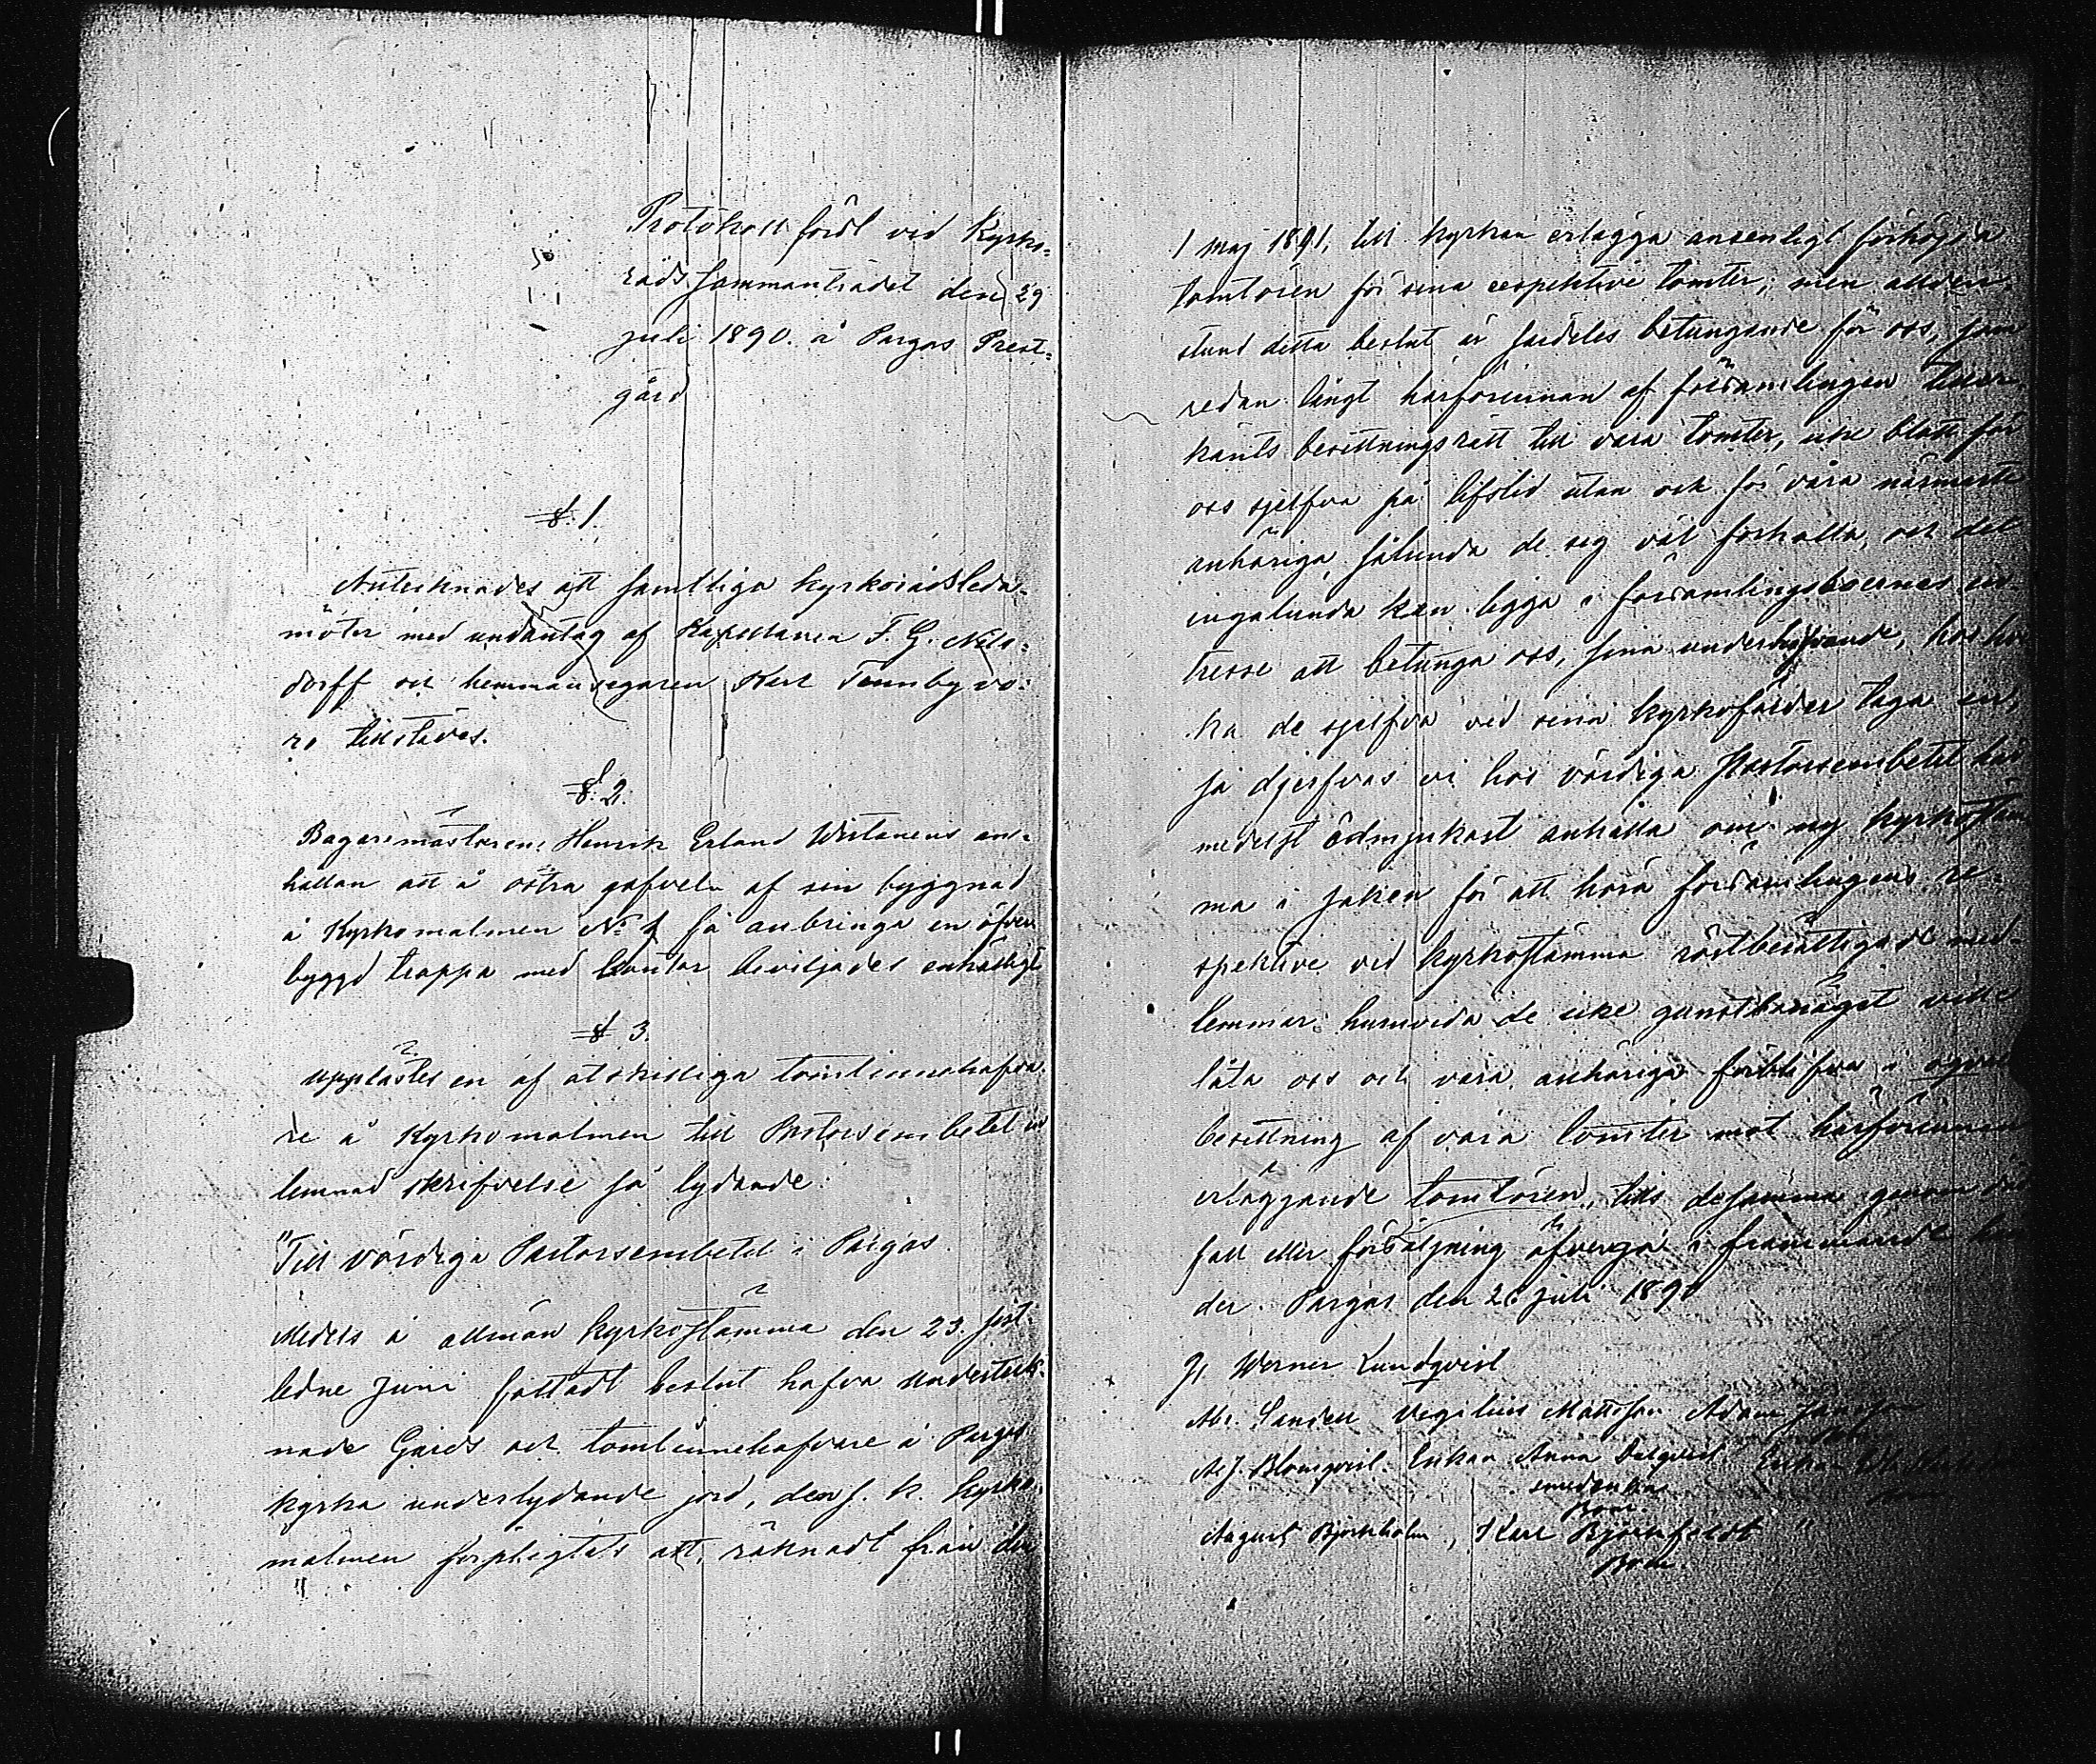 Protokoll fördt vid Kyrko-
råds sammanträdet den 29
juli 1890. å Pargas Prest-
gård
§. 1.
Antecknades att samtliga kyrkorådsleda-
möter med undantag af Kapellanen F. G. Nils-
dorff och hemmansegaren Karl Tennby vo-
ro tillstädes.
§. 2.
Bagaremästaren Henrik Erland Westanens an-
hållan att å östra gafveln af sin byggnad
å Kyrkomalmen No 1 få anbringa en öfver
byggd trappa med kontor beviljades enhälligt
§ 3.
Upplästes en af åtskilliga tomtinnehafva-
re å Kyrkomalmen till Pastorsembetet in
lemnad skrifvelse så lydande:
"Till vördiga Pastorsembetet i Pargas.
Medels å allmän kyrkostämma den 23. sist-
ledne Juni fattadt beslut hafva underteck-
nade Gårds och tomtinnehafvare å Pargas
kyrka underlydande jord, den s. k. Kyrko-
malmen förpligtats att, räknadt från den
1 maj 1891, till kyrkan erlägga ansenligt förhöjda
tomtören för sina respektive tomter; men allden-
stund detta beslut är särdeles betungande för oss, som
redan långt härförinnan af församlingen tiller-
känts besittningsrätt till våra tomter, icke blott för
oss sjelfva på lifstid utan och för våra närmaste
anhöriga, sålunda de sig väl förhålla, och det
ingalunda kan ligga i församlingsboernas in
tresse att betunga oss, sina underlydande, hos hvil
ka de sjelfva vid sina kyrkofärder taga in,
så djerfvas vi hos vördiga Pastorsembetet här
medelst ödmjukast anhålla om ny kyrkostäm
ma i saken för att höra församlingens re-
spektive vid kyrkostämma röstberättigade med-
lemmar huruvida de icke gunstbenäget ville
låta oss och våra anhöriga förblifva i ogvald
besittning af våra tomter mot härförinnan
erläggande tomtören, tills desamma genom döds
fall eller försäljning öfvergå i främmande hän
der. Pargas den 26 juli 1890
G. Werner Lundqvist
Ab. Sandell Vigilius Mattsson Adam Jansson
A. J. Blomqvist. Enkan Anna Dalqvist Enkan
smedenka
Bom
August Björkholm, Karl Björkfeldt "
Bom.